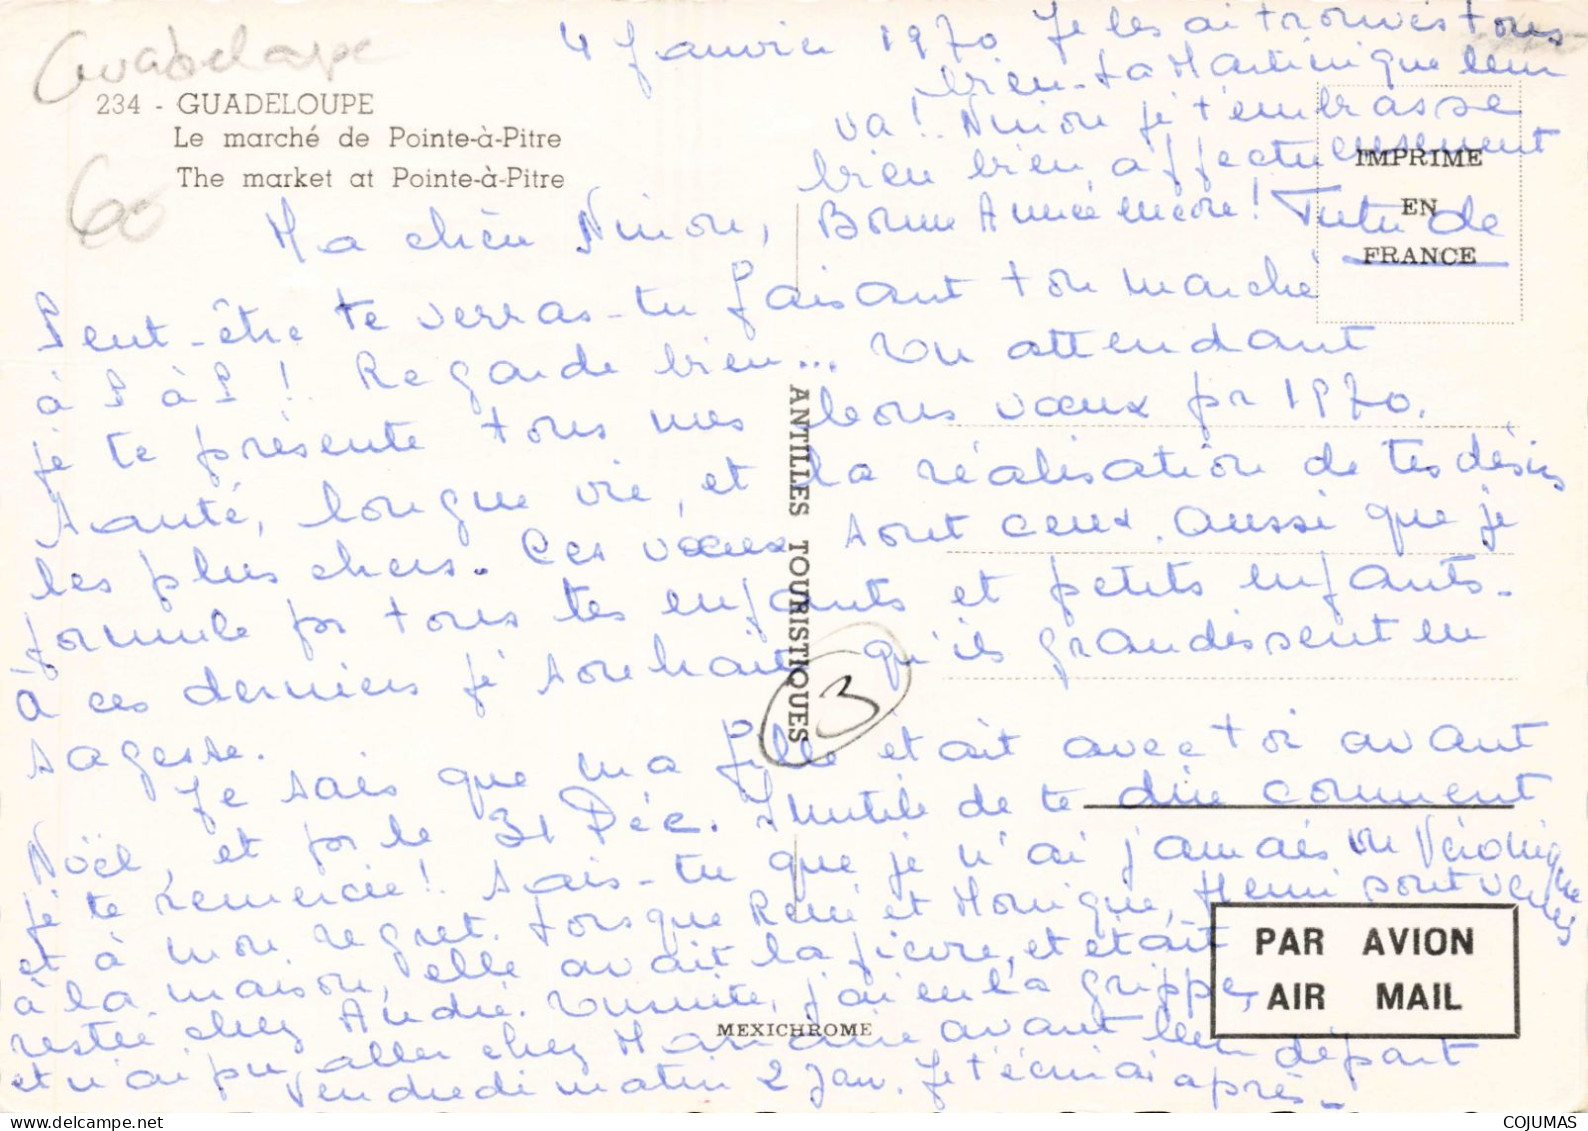 Guadeloupe
234 - GUADELOUPE
Le marché de Pointe-à-Pitre
The market at Pointe-à-Pitre
60
4 Janvier 1970
Ma chère Ninon,
Peut-être te verras-tu faisant ton marché
à P à P ! Regarde bien... En attendant
je te présente tous mes bons vœux pr 1970.
Santé, longue vie, et la réalisation de tes désirs
les plus chers. Ces vœux sont ceux aussi que je
formule pr tous tes enfants et petits enfants.
À ces derniers je souhaite qu'ils grandissent en
sagesse.
Je sais que ma fille était avec toi avant
Noël, et pr le 31 Déc. Inutile de te dire comment
je te remercie ! Sais-tu que je n'ai jamais vu Véronique
et à mon regret. Lorsque René et Monique, Henri sont venus
à la maison, elle avait la fièvre, et était
restée chez André. Ensuite, j'ai eu la grippe,
et n'ai pu aller chez Marianne avant leur départ
Vendredi matin 2 Janv. Je t'écrirai après.
Je les ai trouvés tous
bien. La Martinique leur
va !. Ninon je t'embrasse
bien bien affectueusement
Bonne Année encore ! Tutu de
IMPRIME
EN
FRANCE
ANTILLES TOURISTIQUES
3
MEXICHROME
PAR AVION
AIR MAIL
COJUMAS